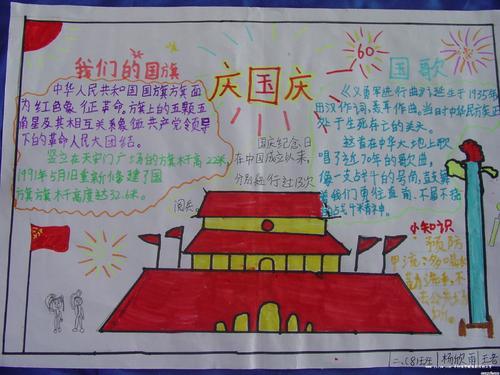 我们的国旗
中华人民共和国国旗旗面
为红色象征革命,旗上的五颗五
角星及其相互关系象征共产党领导
下的革命人民大团结。
竖立在天安门广场的旗杆高22米,
1991年5月1日重新修建了国
旗旗杆高达32.6米。
庆国庆
60
国庆纪念日
在中国成立以来,
分别进行过13次
阅兵。
国歌
《义勇军进行曲》诞生于1935年
由田汉作词、聂耳作曲。当时中华民族正
处于生死存亡的关头。
这首在中华大地上歌
唱了近70年的歌曲,
像一支战斗的号角,鼓舞
着我们勇往直前、不屈不挠
小知识
预防
甲流:多喝水
勤洗手,不
去公共场
所。
杨欣雨